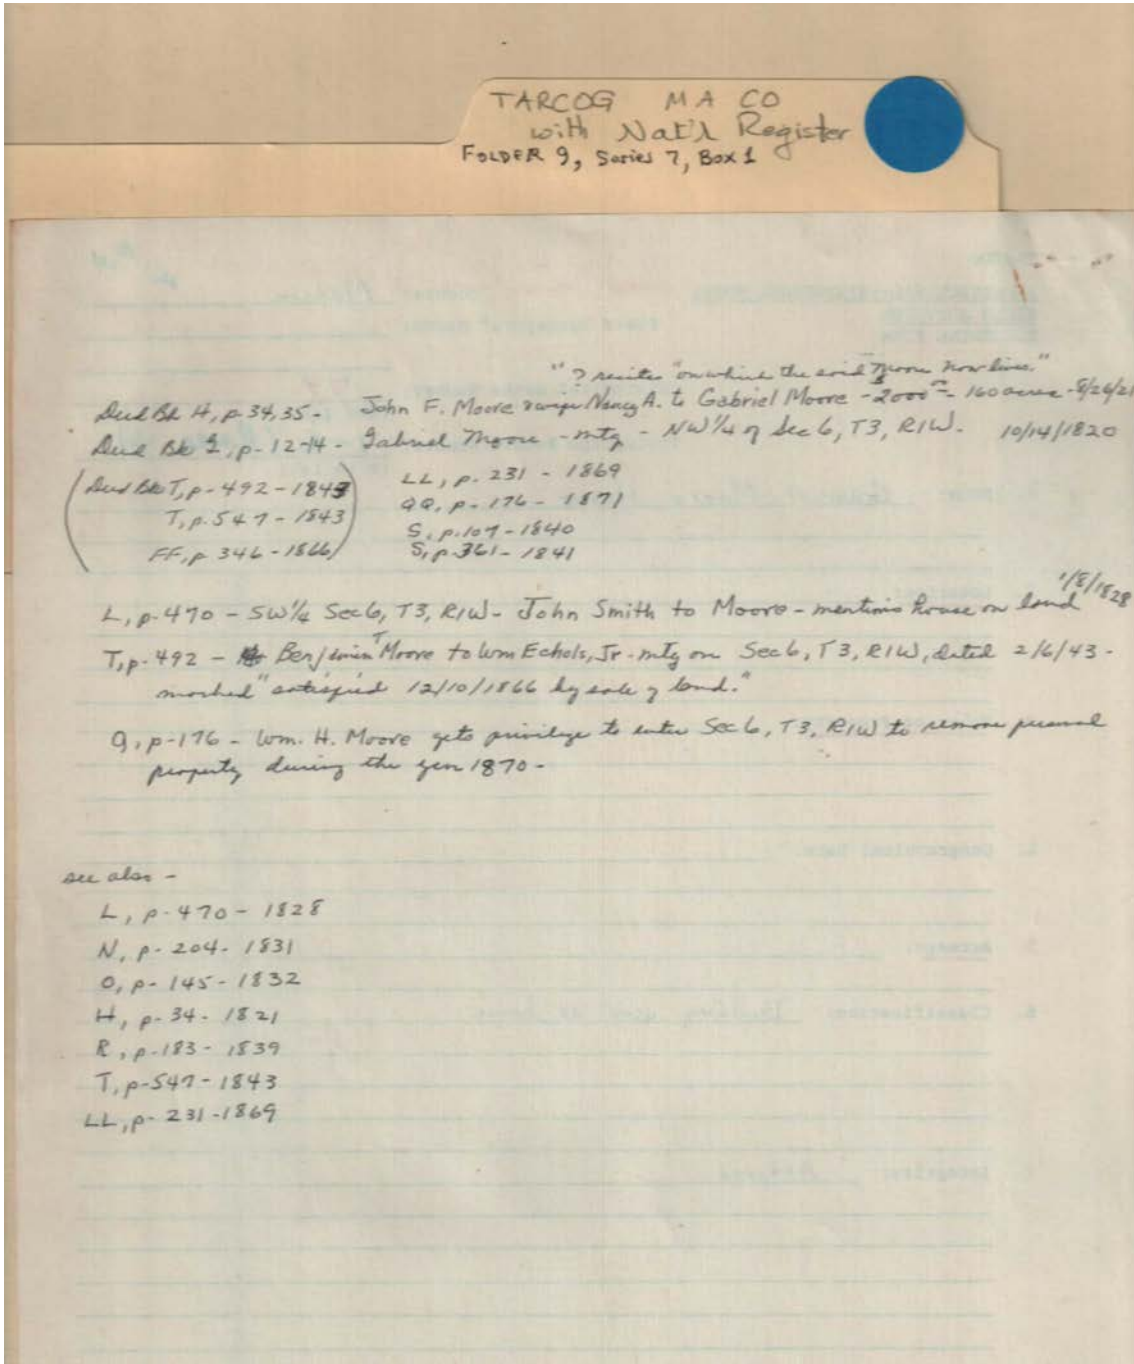 TARCOG MA CO
with Nat'l Register
FOLDER 9, Series 7, Box 1
"? recites "on which the said Moore now lives."
Deed Bk H, p-34,35 - John F. Moore & wife Nancy A. to Gabriel Moore - $2000 - 160 acres - 8/26/21
Deed Bk I, p-12-14 - Gabriel Moore - mtg - NW 1/4 of Sec 6, T3, R1W. 10/14/1820
(Deed Bk T, p-492-1843 LL, p. 231 - 1869
T, p. 547 - 1843 QQ, p. 176 - 1871
S, p. 107 - 1840
FF, p 346 - 1866) S, p. 361 - 1841
1/8/1828
L, p-470 - SW 1/4 Sec 6, T3, R1W - John Smith to Moore - mentions house on land
T, p-492 - Benjamin T Moore to Wm Echols, Jr - mtg on Sec 6, T3, R1W, dated 2/6/43 -
marked "satisfied 12/10/1866 by sale of land."
Q, p-176 - Wm. H. Moore gets privilege to enter Sec 6, T3, R1W to remove personal
property during the year 1870 -
see also -
L, p-470 - 1828
N, p-204 - 1831
O, p-145 - 1832
H, p-34 - 1821
R, p-183 - 1839
T, p-547 - 1843
LL, p-231 - 1869